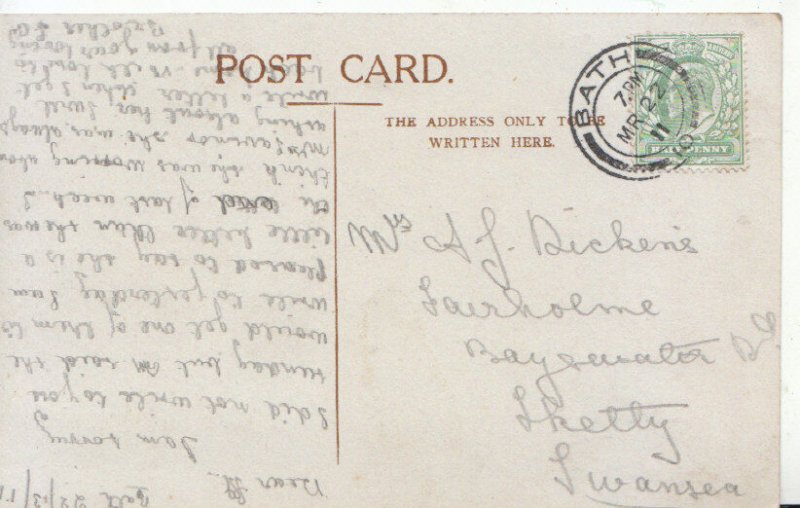 POST CARD.
THE ADDRESS ONLY TO BE
WRITTEN HERE.
BATH
7. PM
MR 22
11
HALFPENNY
Mrs A J. Dickens
Fairholme
Bayswater Rd
Sketty
Swansea
Bath 22/3/11
Dear
I am sorry
I did not write to you
sunday but said she
would get one of them to
write to yesterday I am
pleased to say she is a
little better than she was
the end of last week I
think she was worrying
Mrs she was always
asking about her
write a letter when I get
love to
all from your loving
Brother